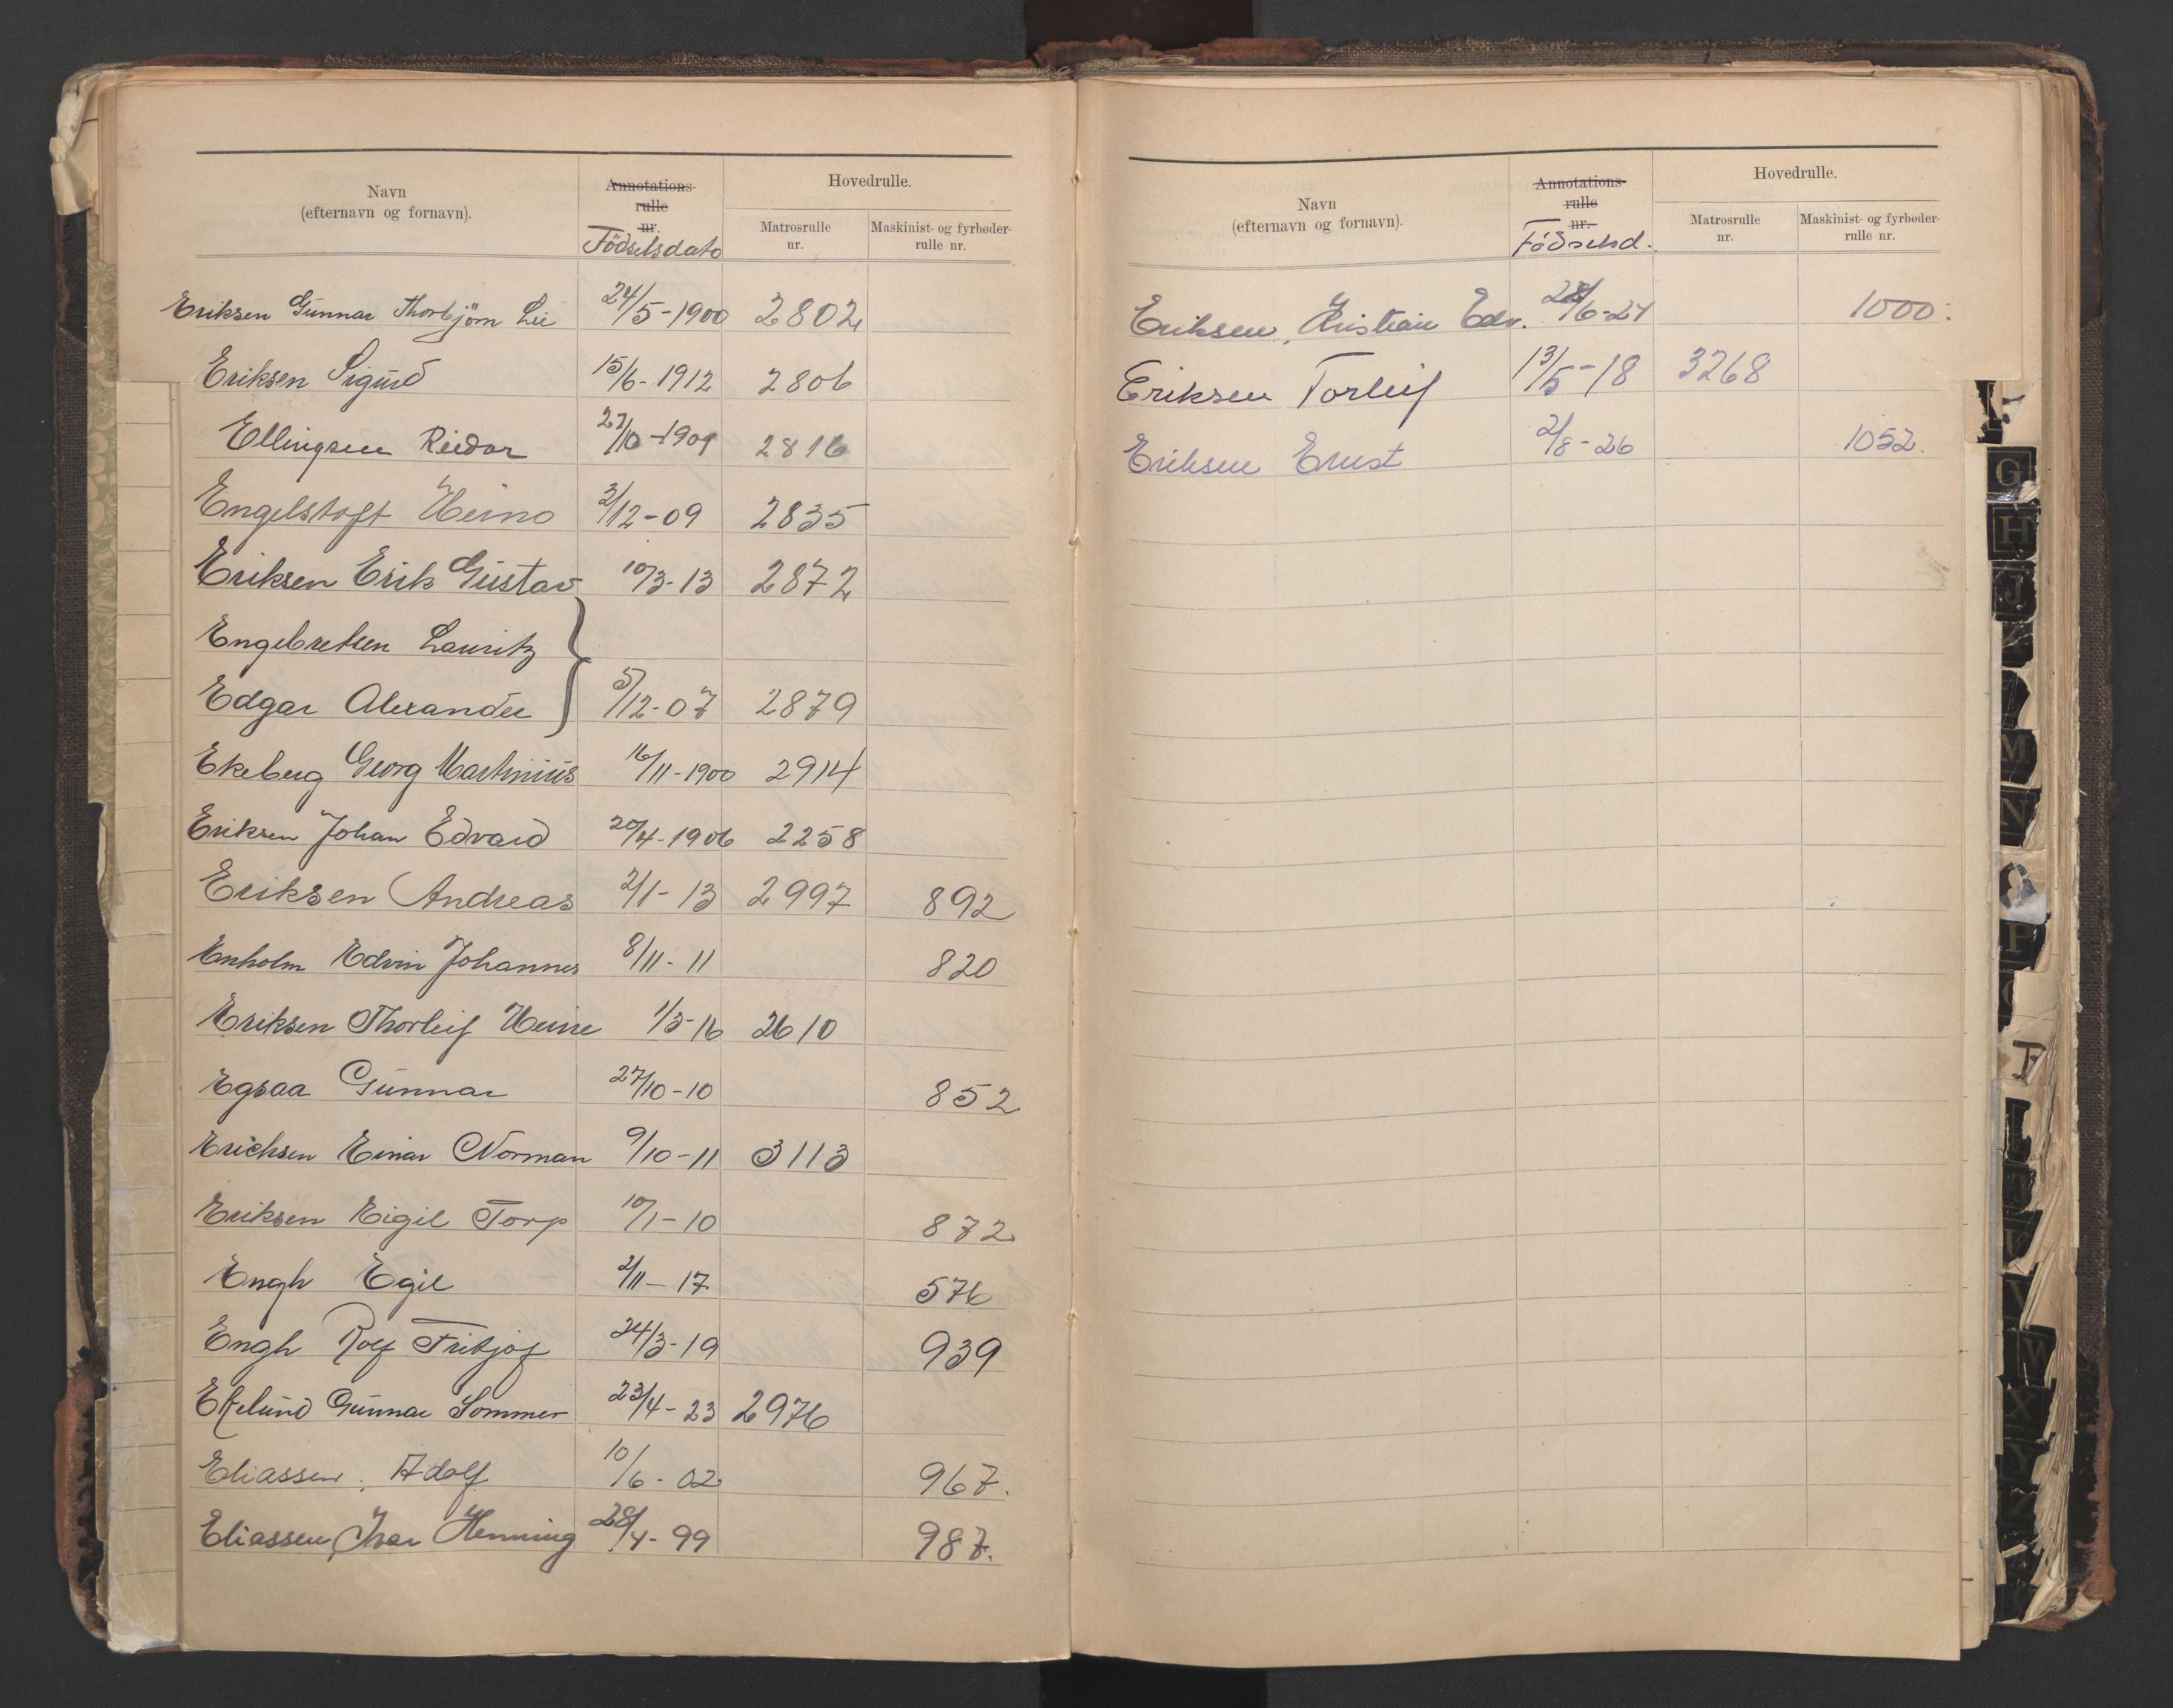 Navn
(efternavn og fornavn).
Annotations-
rulle
nr.
Födselsdato
Hovedrulle.
Matrosrulle
nr.
Maskinist- og fyrbøder-
rulle nr.
Eriksen Gunnar Thorbjörn Lie 24/5-1900 2802
Eriksen Sigurd 15/6-1912 2806
Ellingsen Reidar 27/10-1901 2816
Engelstoft Heino 3/12-09 2835
Eriksen Erik Gustav 10/3-13 2872
Engebretsen Lauritz
Edgar Alexander 5/12-07 2879
Ekeberg Georg Martinius 16/11-1900 2914
Eriksen Johan Edvard 20/4-1906 2258
Eriksen Andreas 2/1-13 2997 892
Enholm Edvin Johannes 8/11-11 820
Eriksen Thorleif Heine 1/3-16 2610
Egsaa Gunnar 27/10-10 852
Erichsen Einar Norman 9/10-11 3113
Eriksen Eigil Torp 10/1-10 872
Engh Egil 2/11-17 576
Engh Rolf Fritjof 24/3-19 939
Ekelund Gunnar Sommer 23/4-23 2976
Eliassen, Adolf 10/6-02 967.
Eliassen, Ivar Henning 28/4-99 987.
Navn
(efternavn og fornavn).
Annotations-
rulle
nr.
Födselsd.
Hovedrulle.
Matrosrulle
nr.
Maskinist- og fyrbøder-
rulle nr.
Eriksen, Kristian Edv. 28/6-24 1000.
Eriksen Torleif 13/5-18 3268
Eriksen Ernst 2/8-26 1052.
G
H
J
M
N
P
W
X
Y
Z